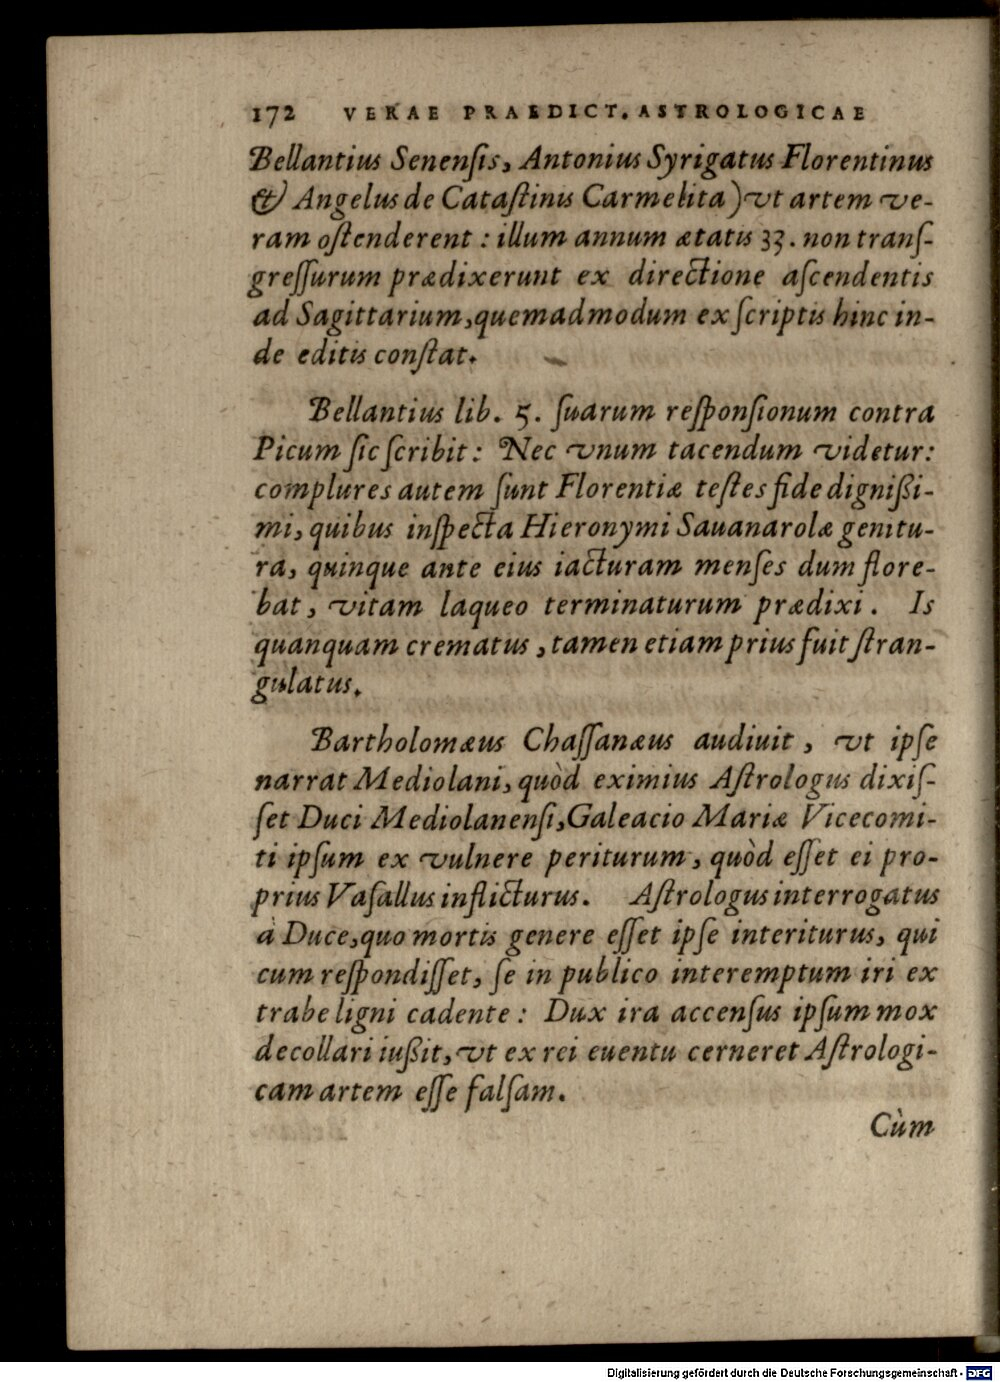 172 VERAE PRAEDICT. ASTROLOGICAE
Bellantius Senenſis, Antonius Syrigatus Florentinus
& Angelus de Cataſtinis Carmelita) vt artem ve-
ram oſtenderent : illum annum ætatis 33. non tranſ-
greſſurum prædixerunt ex directione aſcendentis
ad Sagittarium, quemadmodum ex ſcriptis hinc in-
de editis conſtat.
Bellantius lib. 5. ſuarum reſponſionum contra
Picum ſic ſcribit: Nec vnum tacendum videtur:
complures autem ſunt Florentiæ teſtes fide digniſſi-
mi, quibus inſpecta Hieronymi Sauanarolæ genitu-
ra, quinque ante eius iacturam menſes dum flore-
bat, vitam laqueo terminaturum prædixi. Is
quanquam crematus, tamen etiam prius fuit ſtran-
gulatus.
Bartholomæus Chaſſanæus audiuit, vt ipſe
narrat Mediolani, quòd eximius Aſtrologus dixiſ-
ſet Duci Mediolanenſi, Galeacio Mariæ Vicecomi-
ti ipſum ex vulnere periturum, quòd eſſet ei pro-
prius Vaſallus inflicturus. Aſtrologus interrogatus
à Duce, quo mortis genere eſſet ipſe interiturus, qui
cum reſpondiſſet, ſe in publico interemptum iri ex
trabe ligni cadente : Dux ira accenſus ipſum mox
decollari iußit, vt ex rei euentu cerneret Aſtrologi-
cam artem eſſe falſam.
Cùm
Digitalisierung gefördert durch die Deutsche Forschungsgemeinschaft - DFG